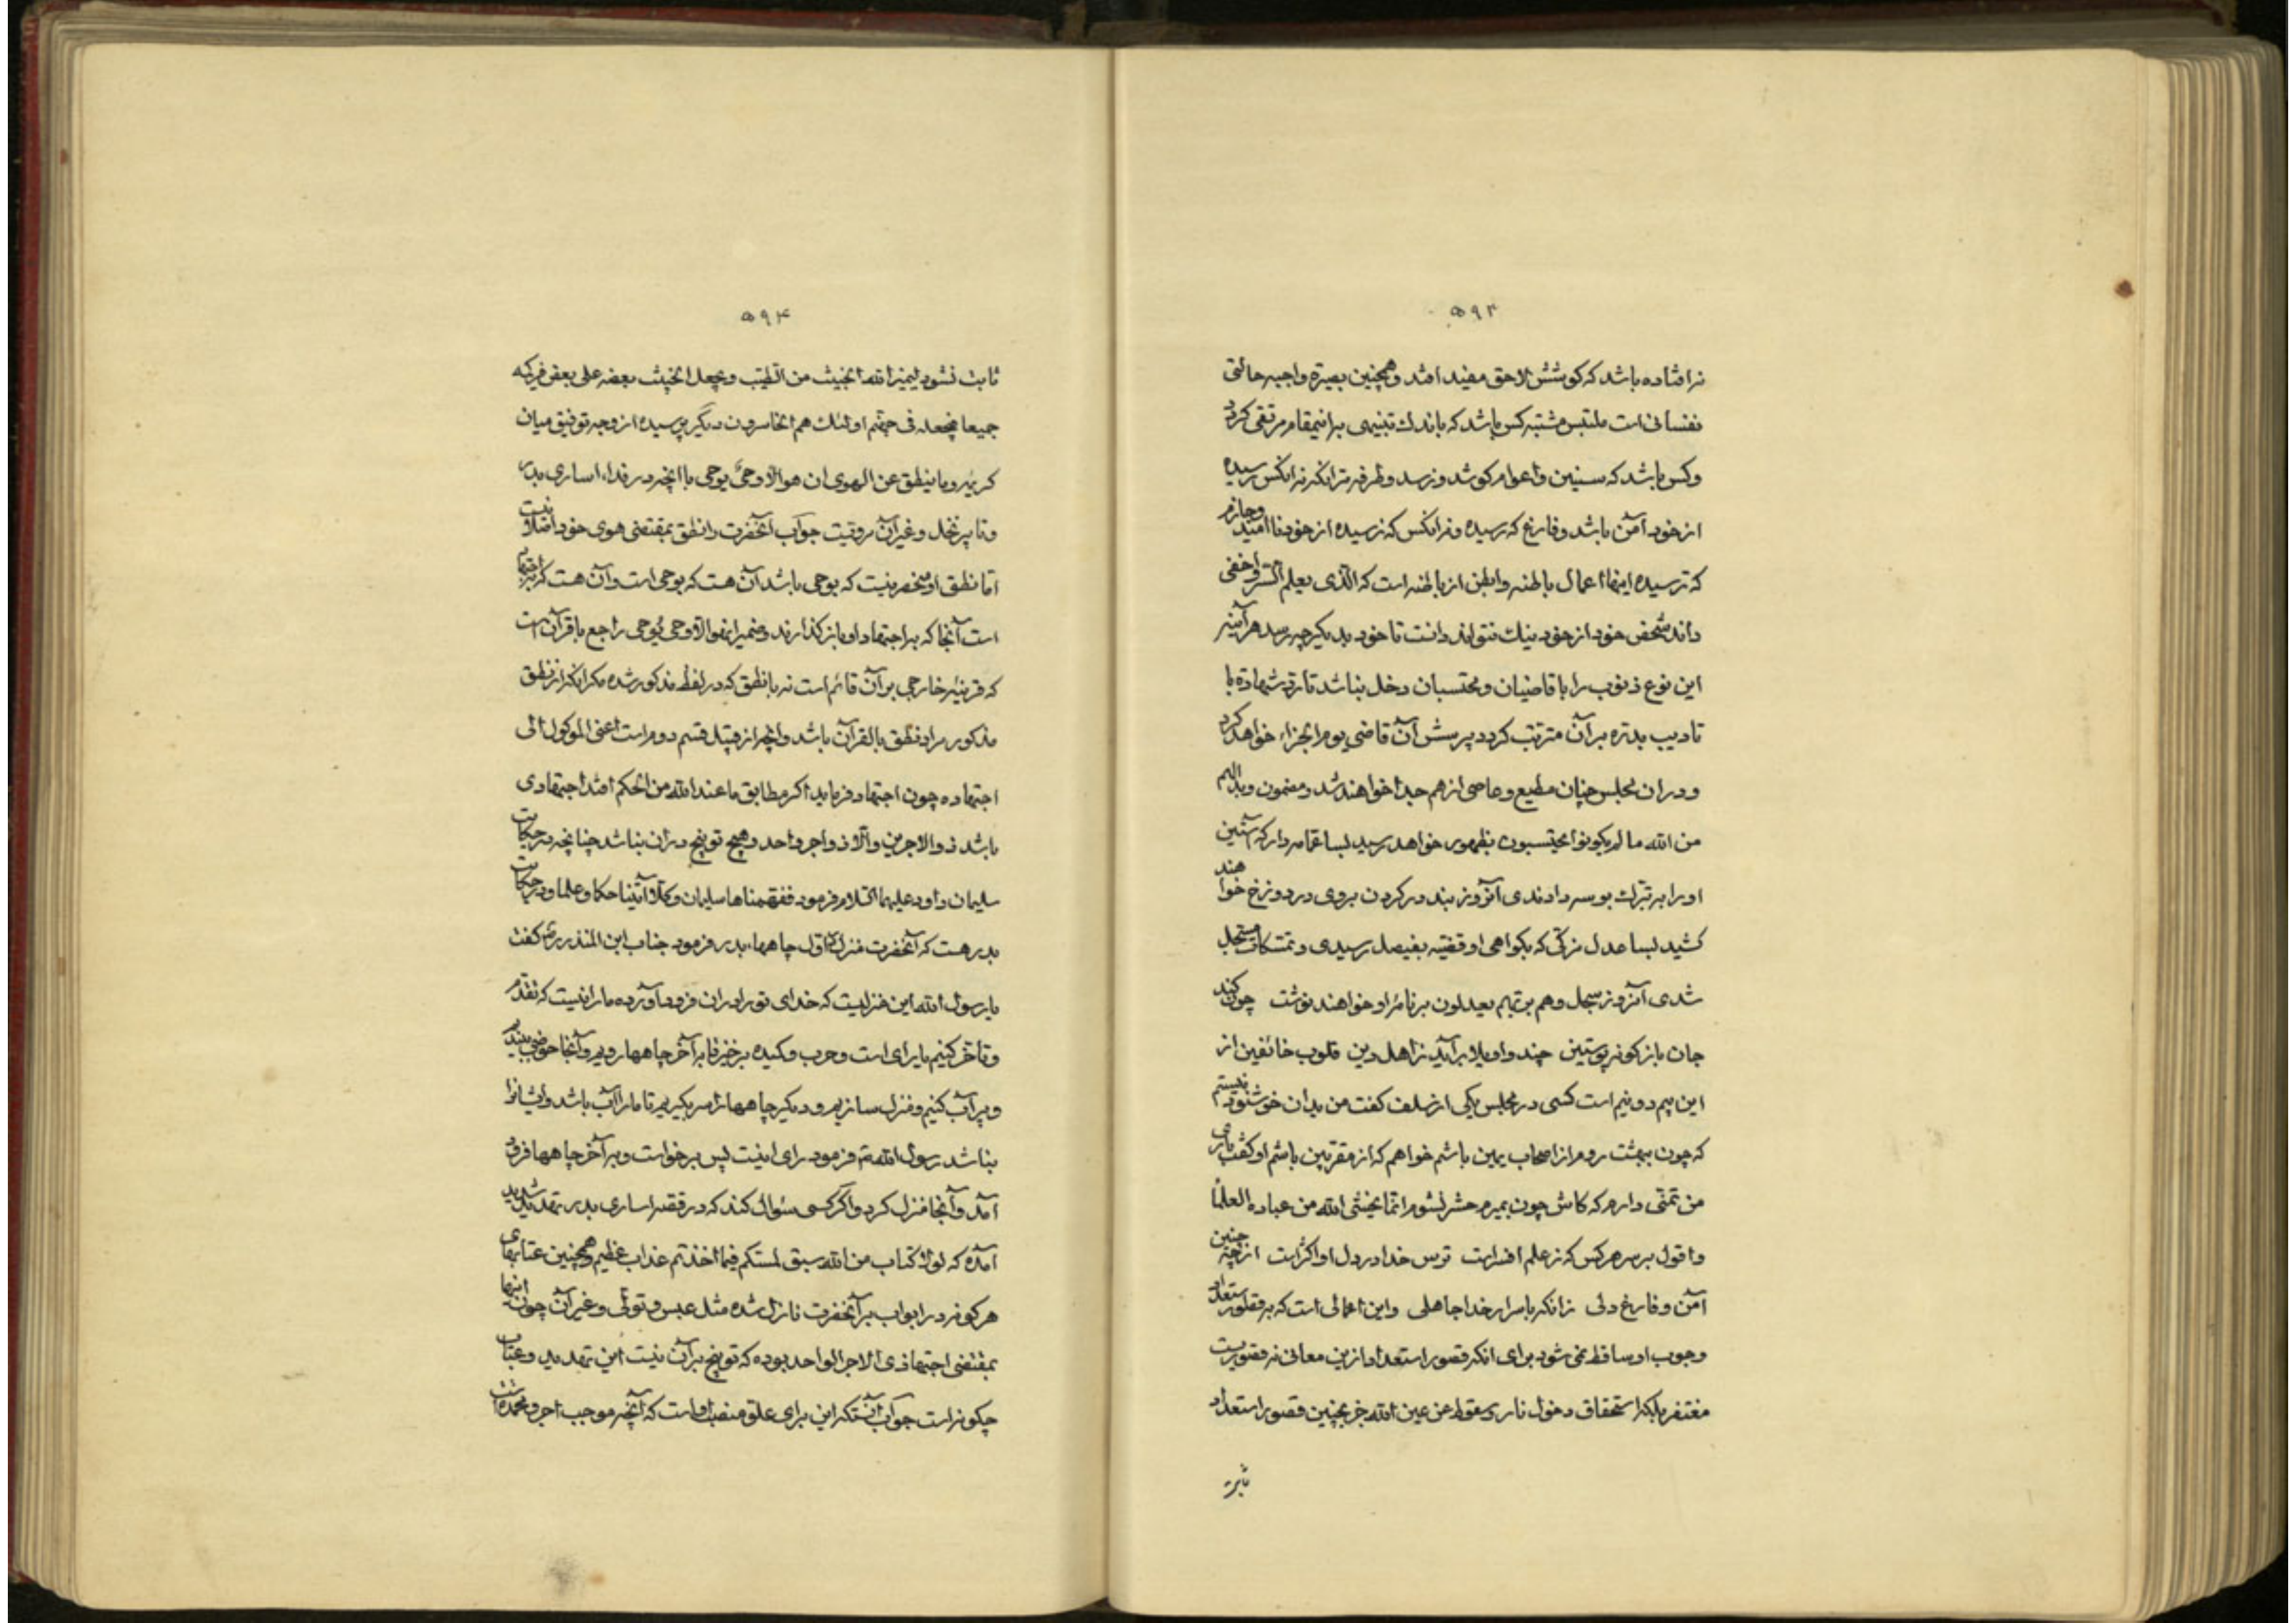 ۵۹۳
نرافتاده باشد که کوشش لاحق مفید افتد و همچنین بصیرة واجبه حالتی
نفسانی است ملتبس مشتبه کس باشد که باندک تنبیهی براینمقام مرتقی کردد
و کس باشد که سنین واعوام کوشد و نرسد وطرفه تر انکه نه انکس رسیده
از خود آمن باشد وفارغ که رسیده و نه انکس که نرسیده از خود ناامید وجازم
که نرسیده اینها اعمال باطنه وابطن از باطنه است که الذی یعلم السّر واخفی
داند شخص خود از خود نیک نتواند دانست تا خود بدیکر چه رسد هر آینه
این نوع ذنوب را با قاضیان و محتسبان دخل نباشد تا رد شهادة یا
تادیب بدرّه بر آن مترتب کردد پرسش آن قاضی یوم الجزاء خواهد کرد
و دران مجلس چنان مطیع وعاصی از هم جدا خواهند شد ومضمون وبدالهم
من الله ما لم یکونوا یحتسبون بظهور خواهد رسید بسا عمامه دار که آستین
او را به تبرک بوسه دادندی آنروز بند در کردن بروی در دوزخ خواهند
کشید بسا عدل مزکّی که بکواهی او قضیه بفیصل رسیدی و تمسکات مسجل
شدی آنروز سجل وهم بربّهم یعدلون بر نامه او خواهند نوشت چون کند
جان بازکونه پوستین چند واویلا برآید ز اهل دین قلوب خائفین از
این بیم دونیم است کسی در مجلس یکی از سلف کفت من بدان خوشنود نیستم
که چون ببهشت روم از اصحاب یمین باشم خواهم که از مقربین باشم او کفت باری
من تمنّی دارم که کاش چون بمیرم حشر نشوم انّما یخشی الله من عباده العلمأ
واقول بر سر هر کس که ز علم افسر است ترس خدا در دل او اکثر است از چه چنین
آمن وفارغ دلی زانکه باسرار خدا جاهلی واین اعمالی است که بر قصور استعداد
وجوب او ساقط نمی شود برای انکه قصور استعداد ازین معانی نه قصوریست
مغتفر بلکه استحقاق دخول نار وسقوط من عین الله جز بچنین قصور استعداد
ثابت
۵۹۴
ثابت نشود لیمیز الله الخبیث من الطیّب ویجعل الخبیث بعضه علی بعض فیرکمه
جمیعا فیجعله فی جهنّم اولئک هم الخاسرون دیگر پرسیده از وجه توفیق میان
کریمه وما ینطق عن الهوی ان هو الّا وحیٌ یوحی با انچه در فداء اساری بدر
وتابیر نخل وغیر آن مرویست جواب آنحضرت را نطق بمقتضی هوی خود اصلا نیست
امّا نطق او منحصر نیست که بوحی باشد آن هست که بوحی است وآن هست که باجتهاد
است آنجا که براجتهاد او باز کذارند وضمیر ان هو الّا وحی یوحی راجع با قرآن است
که قرینهٔ خارجی بر آن قائم است نه با نطق که در لفظ مذکور شده مکر انکه از نطق
مذکور مراد نطق بالقرآن باشد وانچه از قبیل قسم دوم است اعنی الموکول الی
اجتهاده چون اجتهاد فرماید اکر مطابق ما عند الله من الحکم افتد اجتهادی
باشد ذو الاجرین والّا ذو اجر واحد وهیچ توبیخ دران نباشد چنانچه در حکایت
سلیمان وداود علیهما السّلام فرمود ففهّمناها سلیمان وکلّا آتینا حکما وعلما ودر حکایت
بدر هست که آنحضرت منزل اوّل چاهها، بدر فرمود جناب ابن المنذر رض کفت
یا رسول الله این منزلیست که خدای تو را دران فرود آورده ما را نیست که تقدّم
وتاخّر کنیم یا رای است وحرب ومکیده برخیز تا برآخر چاهها رویم وآنجا حوضی بندیم
وپر آب کنیم ومنزل سازیم ودیکر چاهها را سر بکیریم تا ما را آب باشد وایشانرا
نباشد رسول الله ص فرمود رای اینست پس برخواست وبرآخر چاهها فرود
آمد وآنجا منزل کرد واکر کسی سؤال کند که در قصّه اساری بدر تهدید شدید
آمده که لولا کتاب من الله سبق لمسّکم فیما اخذتم عذاب عظیم وهمچنین عتابهای
هرکونه در ابواب بر آنحضرت نازل شده مثل عبس وتولّی وغیر آن چون اینها
بمقتضی اجتهاد ذی الاجر الواحد بوده که توبیخ برآن نیست این تهدید وعتاب
چکونه است جواب آنستکه این برای علوّ منصب او است که آنچه موجب اجر ومحمدت